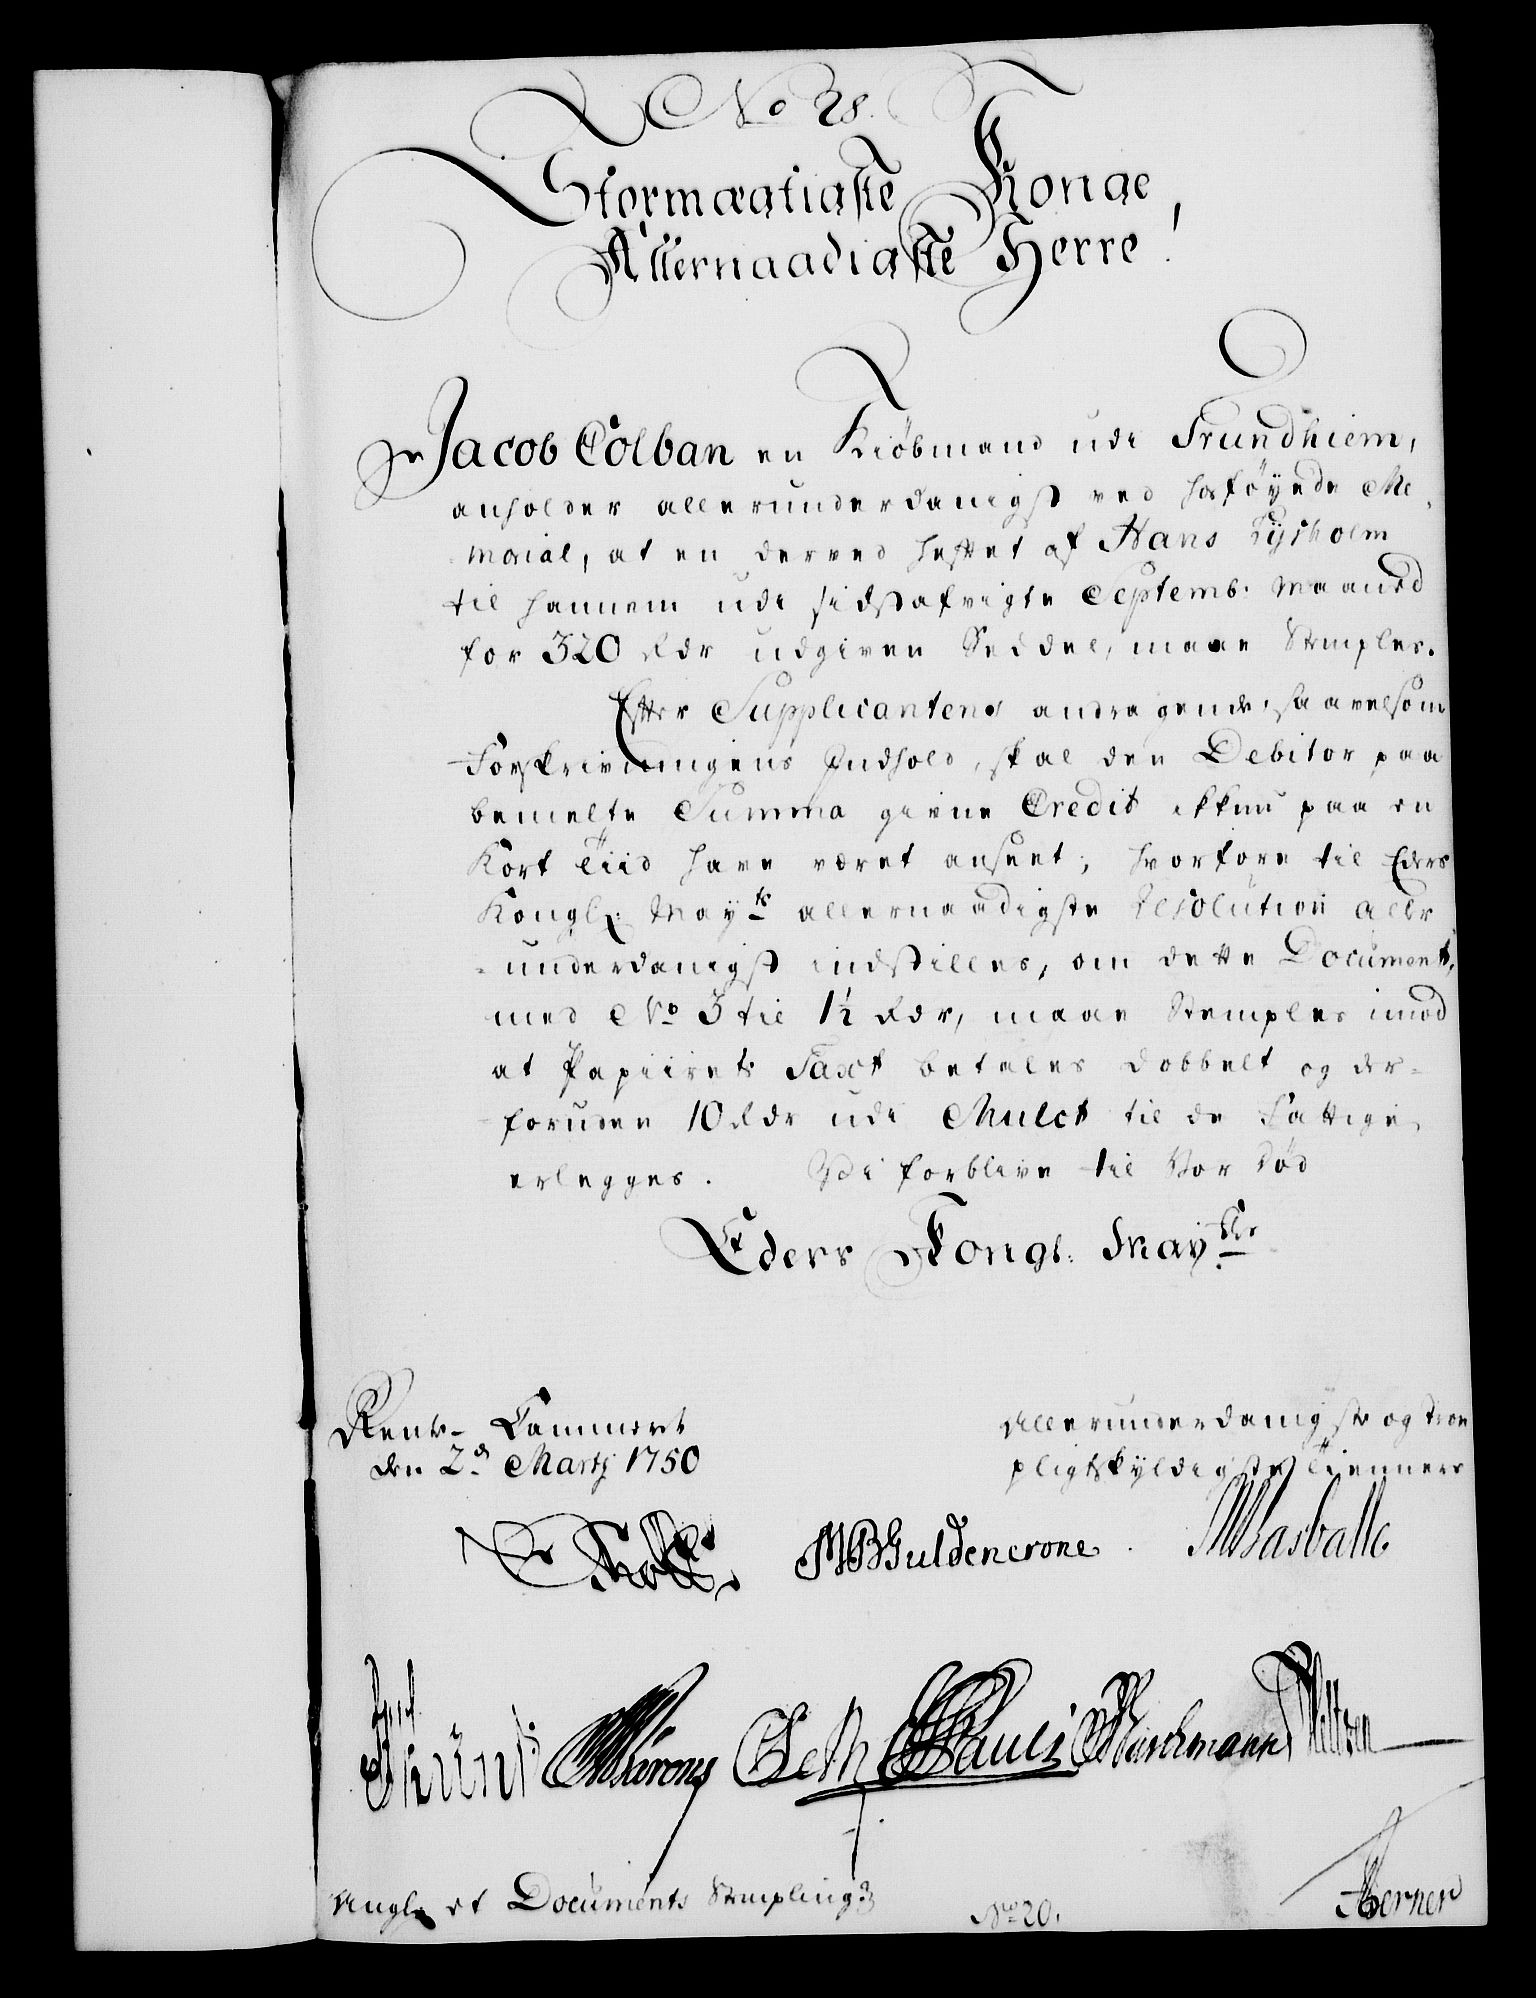 No 28.
Stormægtigste Konge,
Allernaadigste Herre!
Jacob Colban en Kiøbmand udi Trundhiem,
anholder allerunderdanigst ved hosføyede Me
morial, at en derved heftet af Hans Tyrholm
til hannem udi sidstafvigte Septemb: Maaned
for 320 Rdr udgiven Seddel, maae Stemples.
Efter Supplicantens andragende, saavelsom
Forskrivningens Indhold, skal den Debitor paa
bemelte Summa givne Credit ikkun paa en
Kort Tiid have været anseet; hvorfore til Eders
Kongl: Mayts allernaadigste Resolution aller
-underdanigst indstilles, om dette Document,
med No 3 til 1½ Rdr, maae Stemples imod
at Papiirets Taxt betales dobbelt og der-
foruden 10 Rdr udi Mulct til de Fattige
erlegges. Vi forblive til Vor Død
Eders Kongl. Mayts
Rente-Cammeret
den 2d Martj 1750
Allerunderdanigste og troe
pligtskyldigste Tiennere
Holst MBGuldencrone. Basballe
Seth Pauli Marchmann
Angl et Documents Stempling
No 20.
Berner